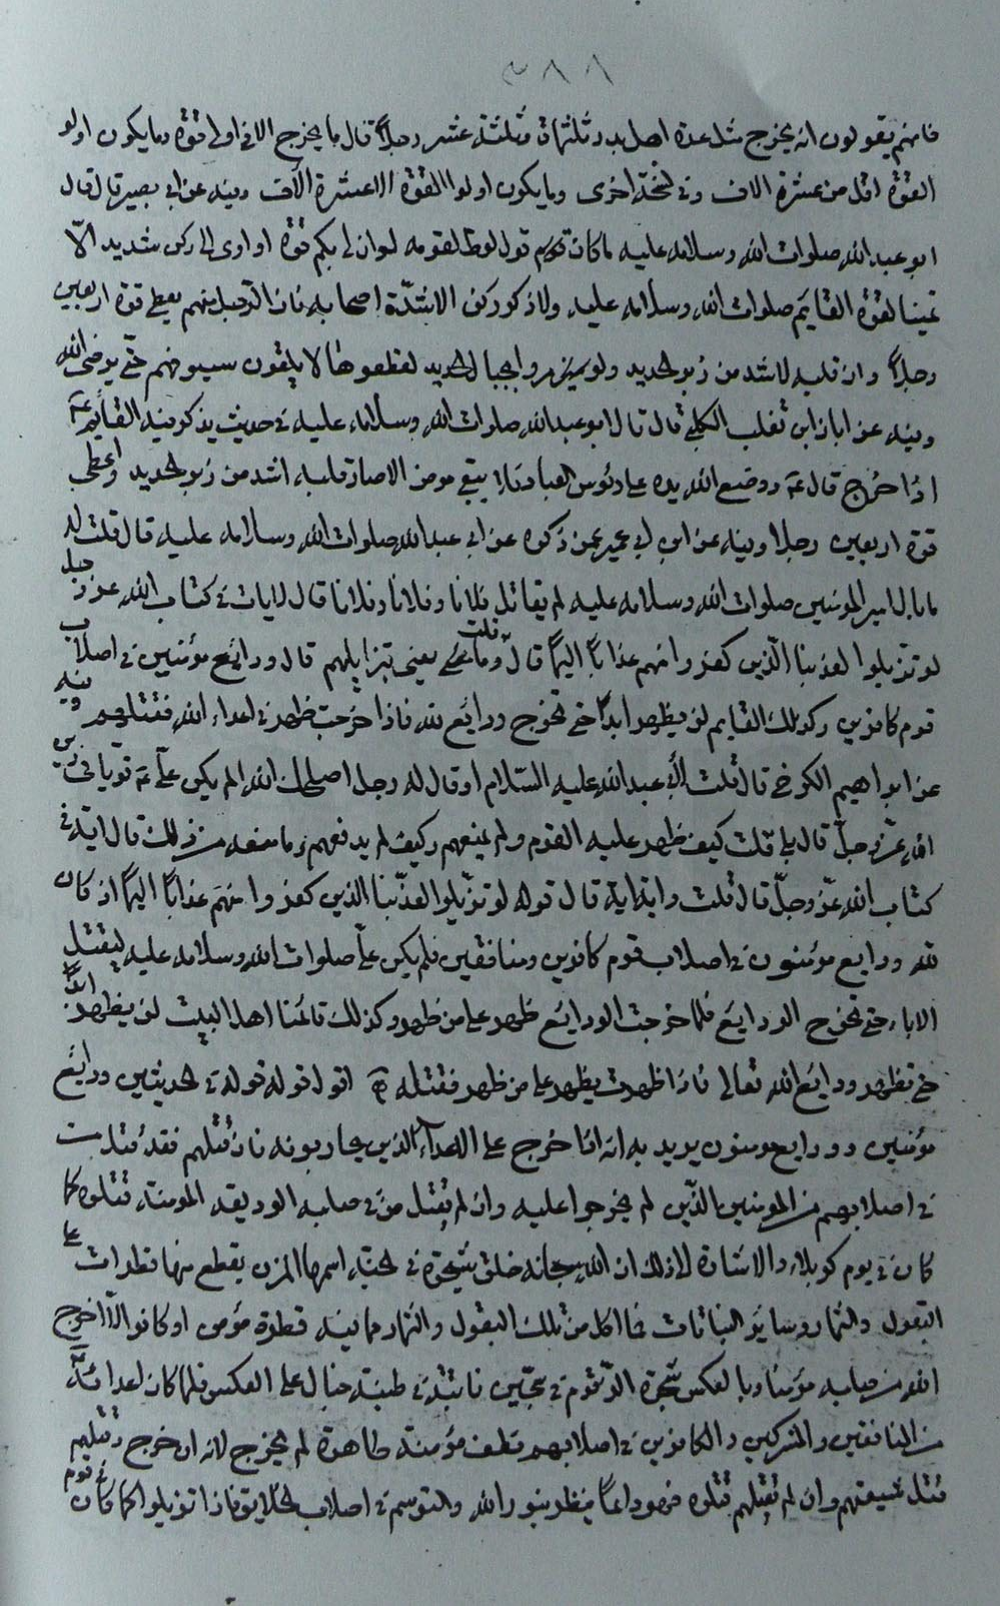 ٣٨٨
فانهم يقولون انه يخرج مثل عدة اهل بدر ثلثمائة وثلثة عشر رجلاً قال ما يخرج الا في اولى قوة وما يكون اولو
القوة اقل من عشرة الاف وفي نسخة اخرى وما يكون اولوا القوة الا عشرة الآف وفيه عن ابي بصير قال قال
ابو عبد الله صلوات الله وسلامه عليه ما كان قول لوط لقومه لو ان لي بكم قوة او اوى الى ركن شديد الّا
تمنيا لقوة القايم صلوات الله وسلامه عليه ولا ذكر ركن الا شدّة اصحابه فان الرجل منهم يعطى قوة اربعين
رجلاً وان قلبه لاشد من زبر الحديد ولو مروا بجبال الحديد لقطعوها لا يلقون سيوفهم حتى يرضى الله
وفيه عن ابان ابن تغلب الكلبي قال قال ابو عبد الله صلوات الله وسلامه عليه في حديث يذكر فيه القايم عه
اذا خرج قال عه ووضع الله يده على رئوس العباد فلا يبقى مومن الا صار قلبه اشد من زبر الحديد واعطى
قوة اربعين رجلا وفيه عن ابن ابي عمير عمن ذكره عن ابي عبد الله صلوات الله وسلامه عليه قال قلت له
ما بال امير المومنين صلوات الله وسلامه عليه لم يقاتل فلانا وفلانا وفلانا قال لايات في كتاب الله عز وجل
لو تزيلوا لعذبنا الّذين كفروا منهم عذاباً اليماً قال قلت وما يعني بتزايلهم قال ودايع مؤمنين في اصلاب
قوم كافرين وكذلك القايم لن يظهر ابداً حتى تخرج ودايع لله فاذا خرجت ظهر في اعداء الله فقتلهم وفيه
عن ابراهيم الكرخي قال قلت لأبي عبد الله عليه السّلام او قال له رجل اصلحك الله الم يكن علي عه قويا في دين
الله عزّ وجلّ قال بلى قلت كيف ظهر عليه القوم ولم يمنعهم وكيف لم يدفعهم وما منعه من ذلك قال اية في
كتاب الله عزّ وجلّ قال قلت واية اية قال قوله لو تزيلوا لعذّبنا الذين كفروا منهم عذاباً اليماً انه كان
لله ودايع مؤمنون في اصلاب قوم كافرين ومنافقين فلم يكن علي صلوات الله وسلامه عليه ليقتل
الاباء حتى تخرج الودايع فلما خرجت الودايع ظهر على من ظهر وكذلك قائمنا اهل البيت لن يظهر ابداً
حتى تظهر ودايع الله تعالى فاذا ظهرت يظهر على من ظهر فقتله اقول قوله في الحديثين ودايع
مؤمنين وودايع مومنون يريد به انه اذا خرج على الاعداء الذين يحاربونه فان قتلهم فقد قتل من
في اصلابهم من المومنين الذّين لم يخرجوا عليه وان لم يقتل من في صلبه الوديعة المومنة قتلوه كما
كان في يوم كربلاء والاشارة لاذلك ان الله سبحانه خلق شجرة في الجنة اسمها المزن يقطع منها قطرات على
البقول والثمار وساير النباتات فما اكل من تلك البقول والثمار مما فيه قطرة مؤمن او كافر الّا اخرج
الله من صلبه مؤمنا وبا لعكس شجرة الزقوم في سجّين نابتة في طينة خبال على العكس فلما كان لعدائه
من المنافقين والمشركين والكافرين في اصلابهم نطف مؤمنة طاهرة لم يخرج لانه ان خرج وقتلهم
قتل شيعتهم وان لم يقتلهم قتلوه فهو دائماً ينظر بنور الله والتوسم في اصلاب الخلايق فاذا تزيلوا كما كان في قوم